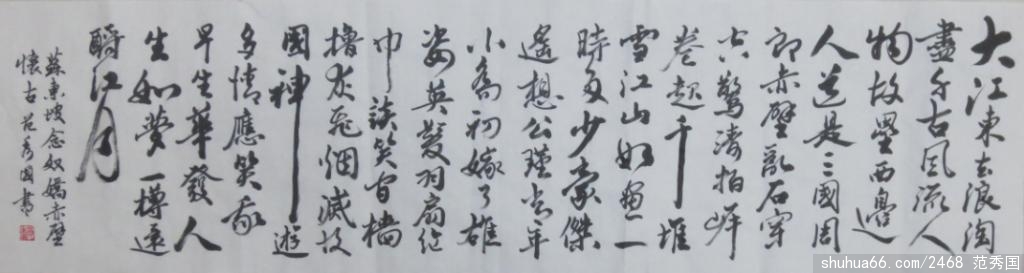 大江東去浪淘
盡千古風流人
物故壘西邊
人道是三國周
郎赤壁亂石穿
空驚濤拍岸
卷起千堆
雪江山如畫一
時多少豪傑
遙想公瑾當年
小喬初嫁了雄
姿英發羽扇綸
巾談笑間檣
擼灰飛烟滅故
國神遊
多情應笑我
早生華發人
生如夢一樽還
酹江月
蘇東坡念奴嬌赤壁
懷古 范秀國書
shuhua66.com/2468 范秀国